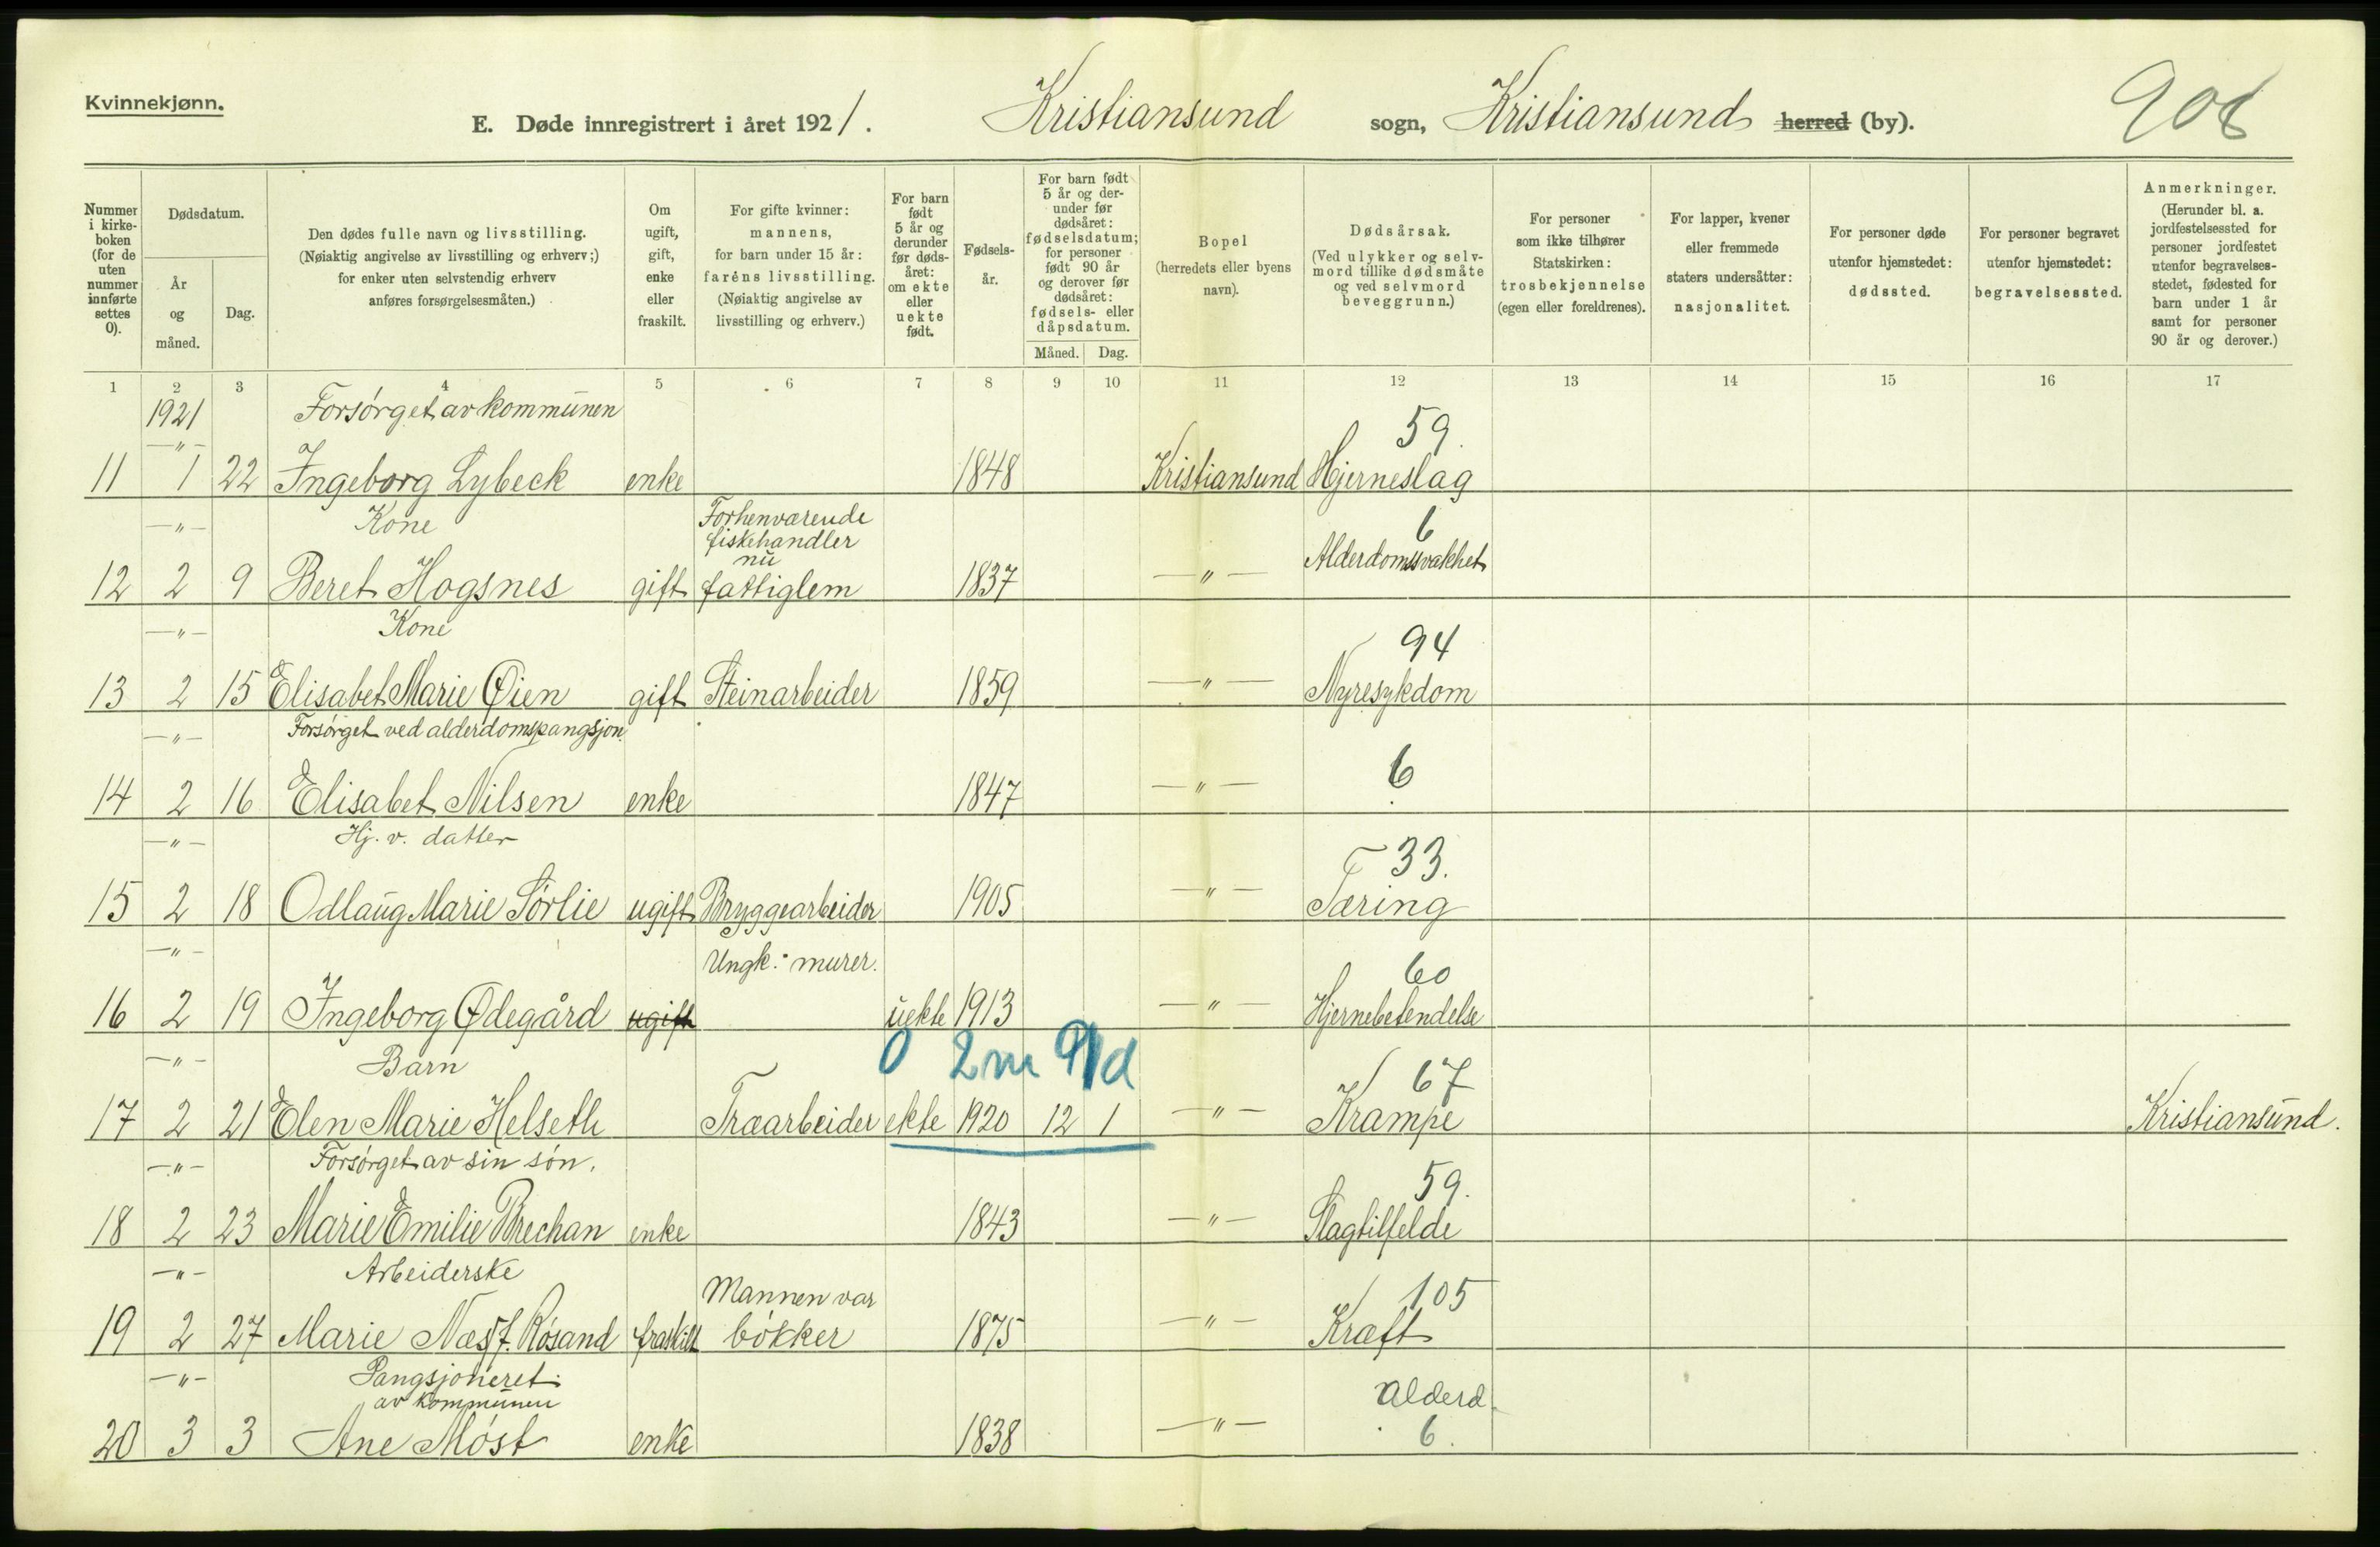 Kvinnekjønn.
E. Døde innregistrert i året 1921. Kristiansund sogn, Kristiansund herred (by).
Nummer i kirkeboken (for de uten nummer innførte settes 0).
Dødsdatum.
År og måned.
Dag.
Den dødes fulle navn og livsstilling. (Nøiaktig angivelse av livsstilling og erhverv;) for enker uten selvstendig erhverv anføres forsørgelsesmåten.)
Om ugift, gift, enke eller fraskilt.
For gifte kvinner: mannens, for barn under 15 år: farens livsstilling. (Nøiaktig angivelse av livsstilling og erhverv.)
For barn født 5 år og derunder før dødsåret: om ekte eller uekte født.
Fødselsår.
For barn født 5 år og derunder før dødsåret: fødselsdatum; for personer født 90 år og derover før dødsåret: fødsels- eller dåpsdatum.
Måned. Dag.
Bopel (herredets eller byens navn).
Dødsårsak. (Ved ulykker og selvmord tillike dødsmåte og ved selvmord beveggrunn.)
For personer som ikke tilhører Statskirken: trosbekjennelse (egen eller foreldrenes).
For lapper, kvener eller fremmede staters undersåtter: nasjonalitet.
For personer døde utenfor hjemstedet: dødssted.
For personer begravet utenfor hjemstedet: begravelsessted.
Anmerkninger. (Herunder bl. a. jordfestelsessted for personer jordfestet utenfor begravelsesstedet, fødested for barn under 1 år samt for personer 90 år og derover.)
1 2 3 4 5 6 7 8 9 10 11 12 13 14 15 16 17
1921 Forsørget av kommunen 59.
—"—
11 1 22 Ingeborg Lybeck enke 1848 Kristiansund Hjerneslag
—"— Kone Forhenværende fiskehandler nu 6
12 2 9 Beret Hogsnes gift fattiglem 1837 —"— Alderdomssvakhet
—"— Kone 94
13 2 15 Elisabet Marie Øien gift Steinarbeider 1859 —"— Nyresykdom
—"— Forsørget ved alderdomspangsjon
14 2 16 Elisabet Nilsen enke 1847 —"— 6
—"— Hj. v. datter 33.
15 2 18 Odlaug Marie Sørlie ugift Bryggearbeider 1905 —"— Tæring
—"— Ungk.: murer. 60
16 2 19 Ingeborg Ødegård ugift uekte 1913 —"— Hjernebetendelse
—"— Barn 0 2m 67
17 2 21 Elen Marie Helseth Træarbeider ekte 1920 12 1 —"— Krampe Kristiansund.
—"— Forsørget av sin søn. 59.
18 2 23 Marie Emilie Brechan enke 1843 —"— Slagtilfelde
—"— Arbeiderske Mannen var 105
19 2 27 Marie Næss f. Røsand fraskilt bøkker 1875 —"— Kræft
—"— Pangsjoneret av kommunen Alderd.
20 3 3 Ane Møst enke 1838 —"— 6.